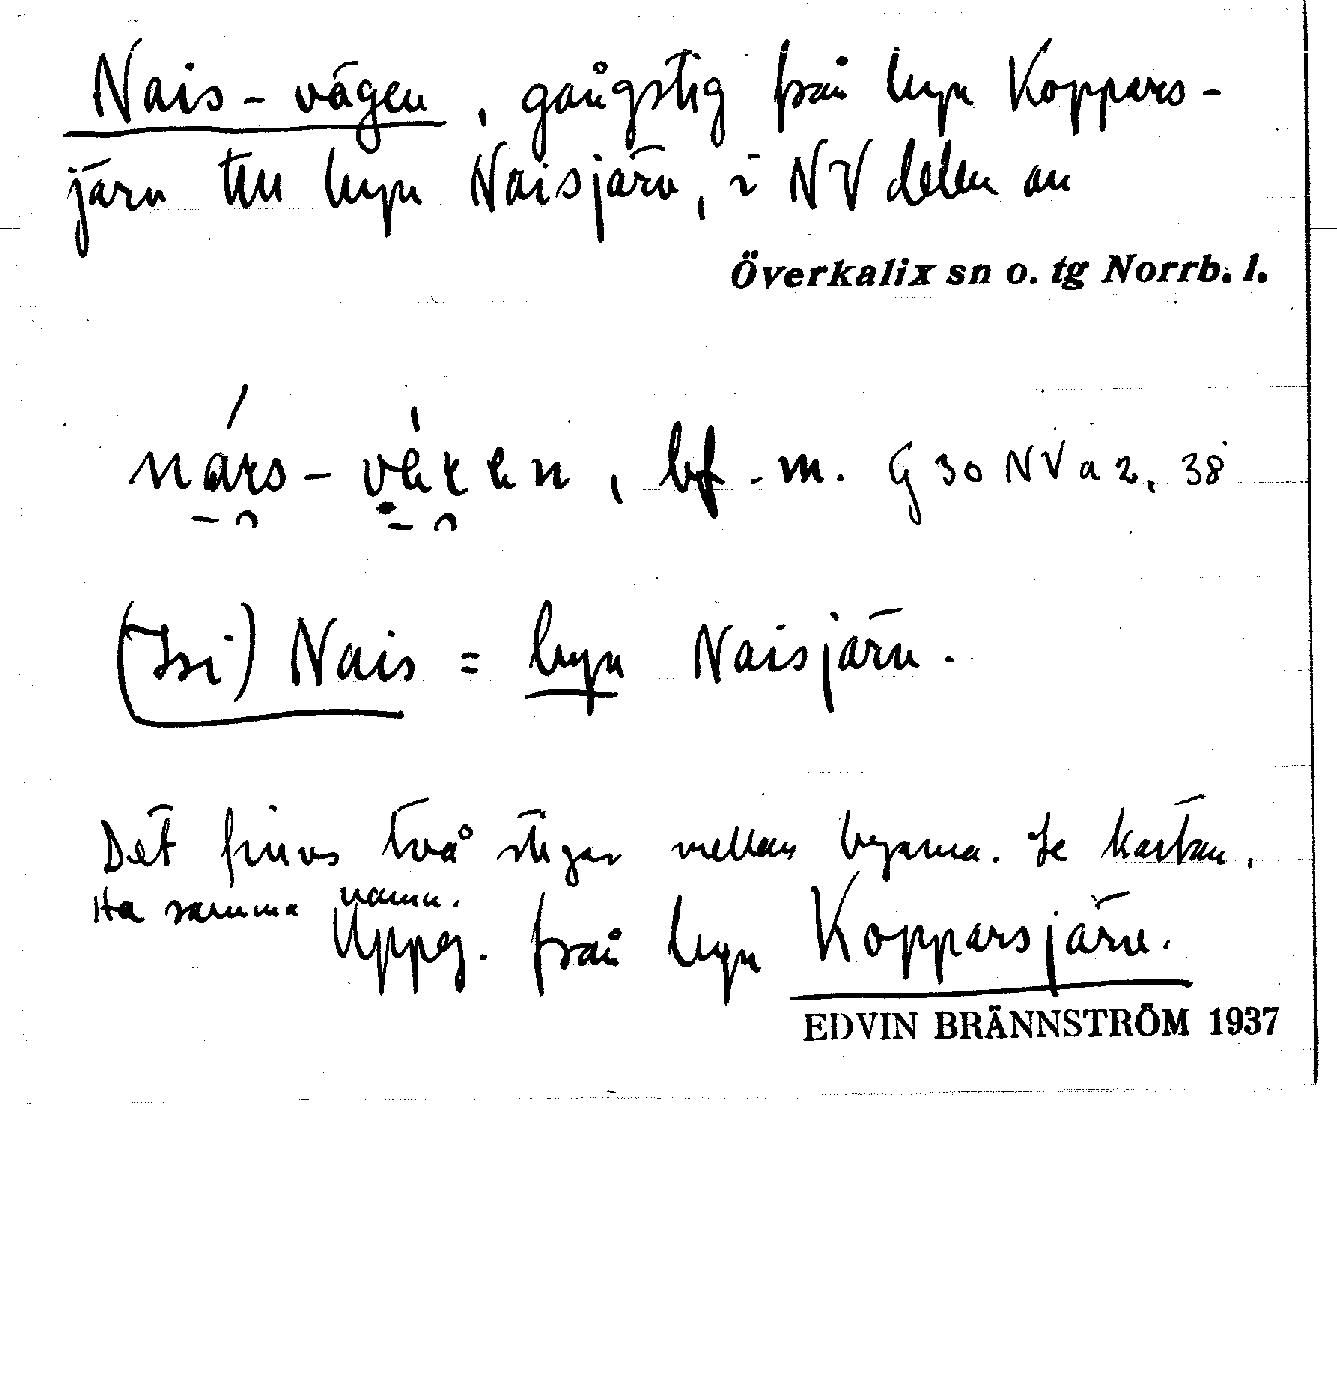 Nais-vägen, gångstig från byn Koppars-
järv till byn Naisjärv, i NV delen av
Överkalix sn o. tg Norrb. l.
bf. m. G 30 NV a 2, 38
Nais = byn Naisjärv.
Det finns två stigar mellan byarna. Se kartan.
Ha samma namn.
Uppg. från byn Kopparsjärv.
EDVIN BRÄNNSTRÖM 1937